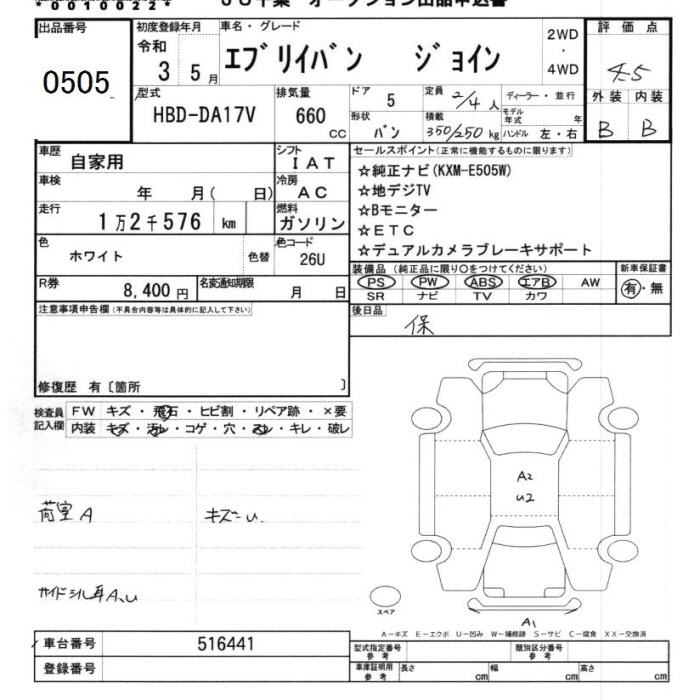 *00100222*
JU千葉 オークション出品申込書
出品番号
0505
初度登録年月
令和
3 5月
車名・グレード
エブリイバン ジョイン
2WD
・
4WD
評価点
4.5
外装 内装
B B
型式
HBD-DA17V
排気量
660
cc
ドア
5
定員
2/4人
ディーラー・並行
形状
バン
積載
350/250kg
モデル年式 年
ハンドル 左・右
車歴
自家用
シフト
IAT
車検
年 月( 日)
冷房
AC
走行
1万2千576 km
燃料
ガソリン
色
ホワイト
色替
色コード
26U
R券
8,400円
名変通知期限
月 日
セールスポイント(正常に機能するものに限ります)
☆純正ナビ(KXM-E505W)
☆地デジTV
☆Bモニター
☆ETC
☆デュアルカメラブレーキサポート
装備品(純正品に限り○をつけてください)
PS PW ABS エアB AW
SR ナビ TV カワ
新車保証書
有・無
後日品
保
注意事項申告欄(不具合内容等は具体的に記入して下さい)
修復歴 有〔箇所 〕
検査員記入欄
FW キズ・飛石・ヒビ割・リペア跡・×要
内装 キズ・汚レ・コゲ・穴・スレ・キレ・破レ
荷室A
キズ-U
サイドシル耳A、U
A2
U2
スペア
A1
A-キズ E-エクボ U-凹み W-補修跡 S-サビ C-腐食 XX-交換済
車台番号
516441
登録番号
型式指定番号
参考
類別区分番号
参考
車庫証明用
参考
長さ cm
幅 cm
高さ cm